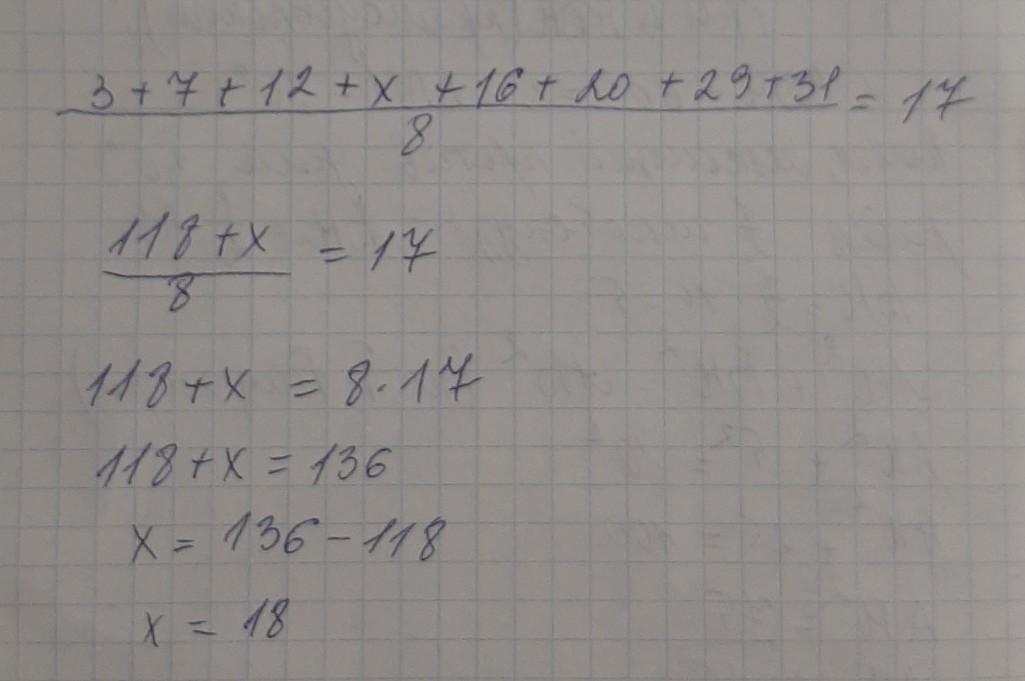 3 + 7 + 12 + x + 16 + 20 + 29 + 31 = 17
8
118 + x = 17
8
118 + x = 8 · 17
118 + x = 136
x = 136 - 118
x = 18